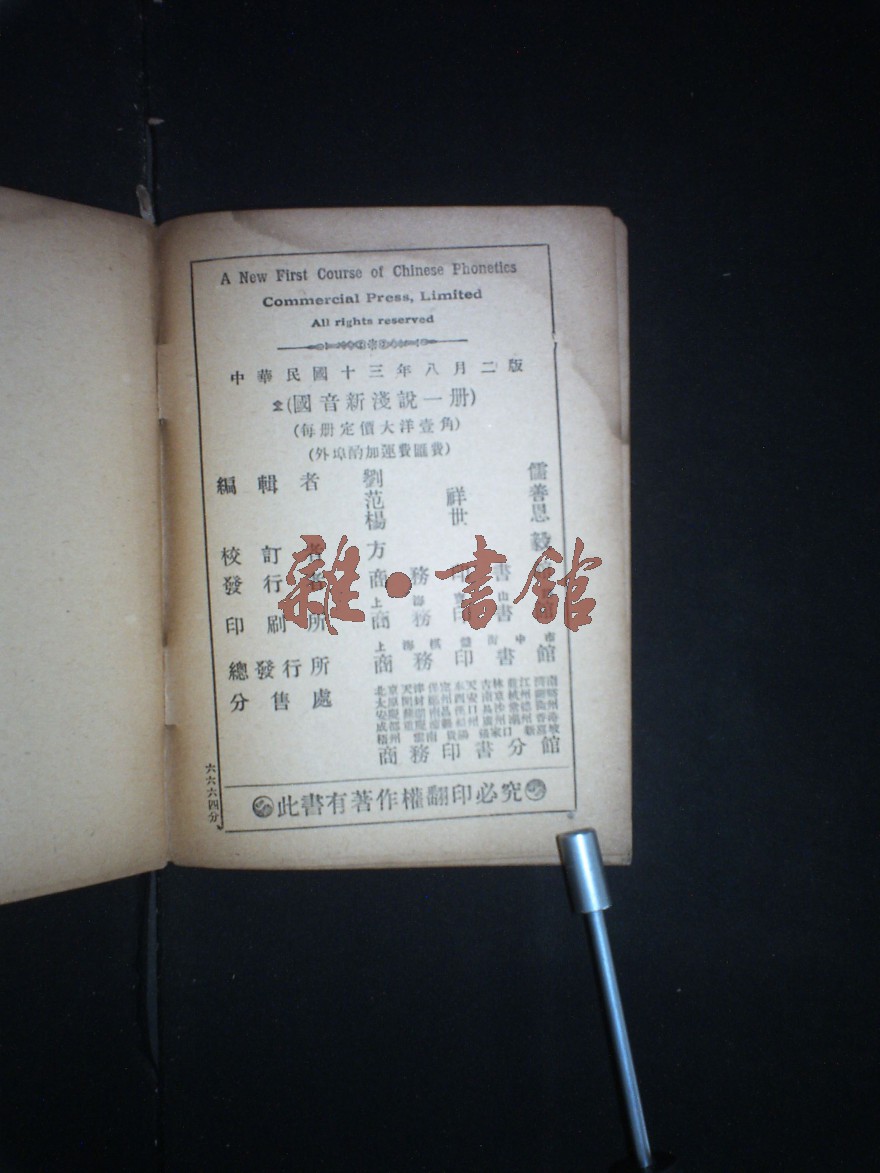 A New First Course of Chinese Phonetics
Commercial Press, Limited
All rights reserved
中華民國十三年八月二版
(國音新淺說一册)
(每册定價大洋壹角)
(外埠酌加運費匯費)
編輯者 劉儒
范祥善
楊世恩
校訂者 方毅
發行者 商務印書館
印刷所 商務印書館
上海棋盤街中市
總發行所 商務印書館
分售處
商務印書分館
此書有著作權翻印必究
六六六四分
雜·書館